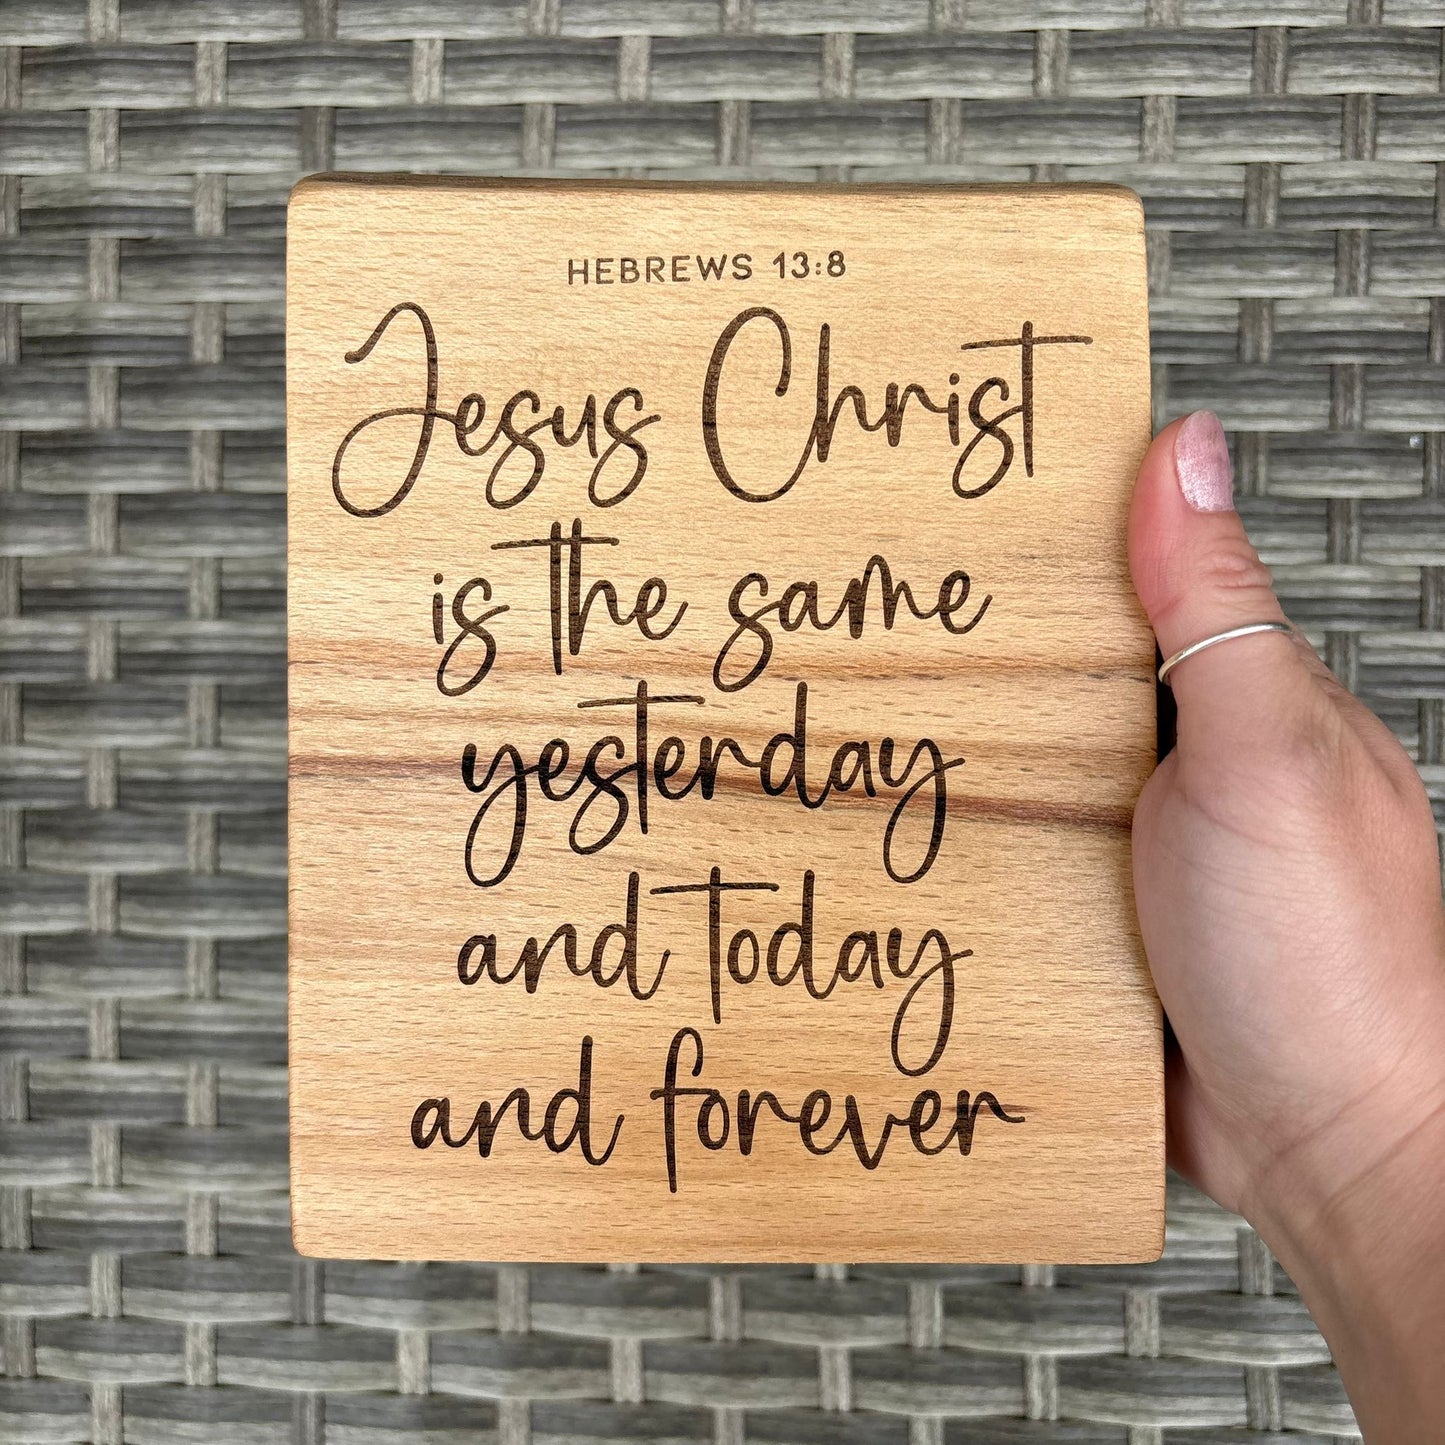 HEBREWS 13:8
Jesus Christ
is the same
yesterday
and today
and forever